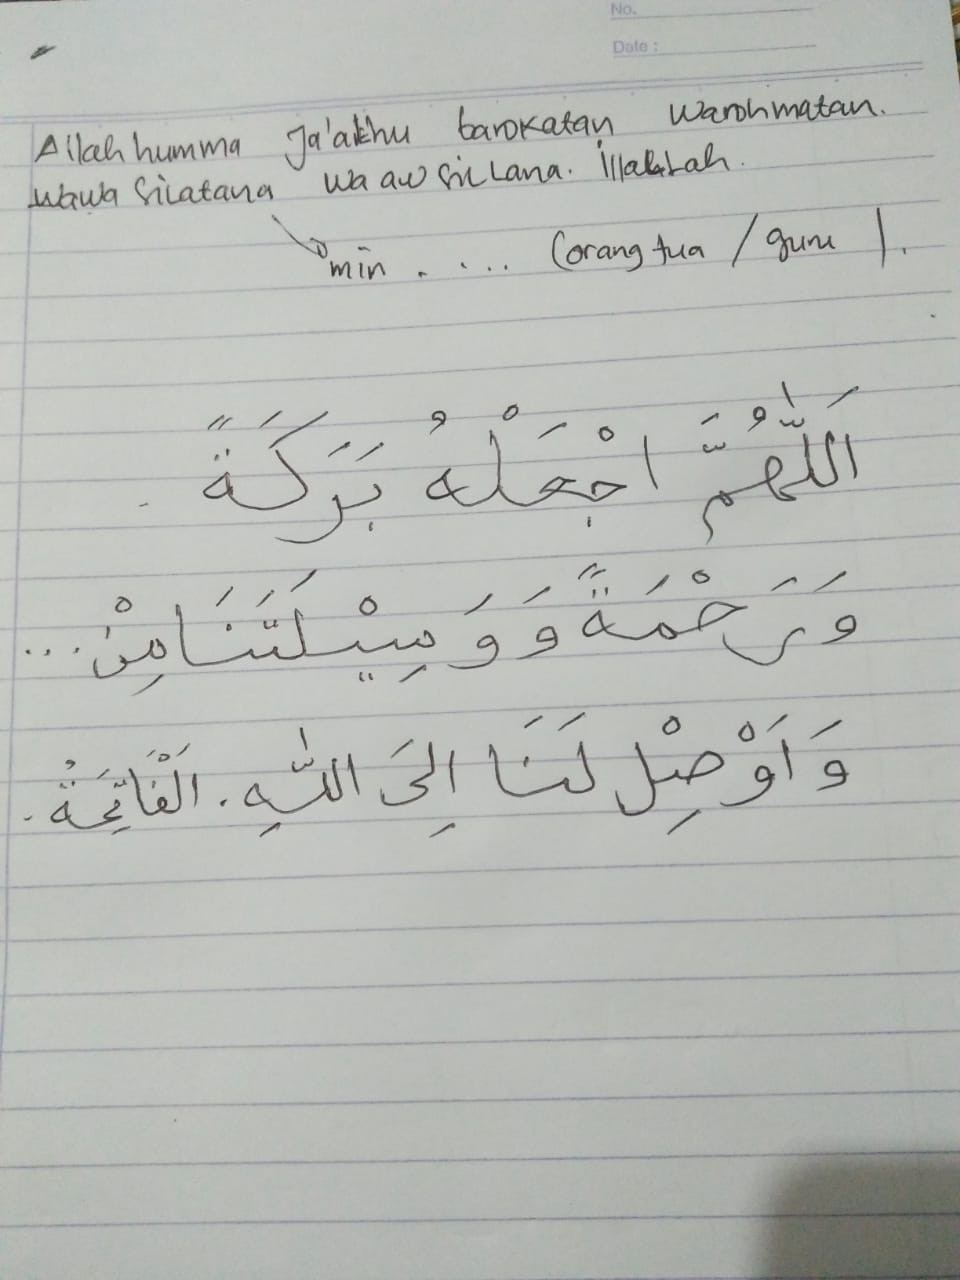 No.
Date :
Allahhumma Ja'alhu barokatan warohmatan.
wawasilatana wa aw sillana. illallah.
min . . . . . (orang tua / guru ).
اَللّٰهُمَّ اجْعَلْهُ بَرَكَةً
وَرَحْمَةً وَوَسِيْلَتَنَا مِنْ ...
وَاَوْصِلْ لَنَا اِلَى اللّٰهِ . اَلْفَاتِحَةُ .